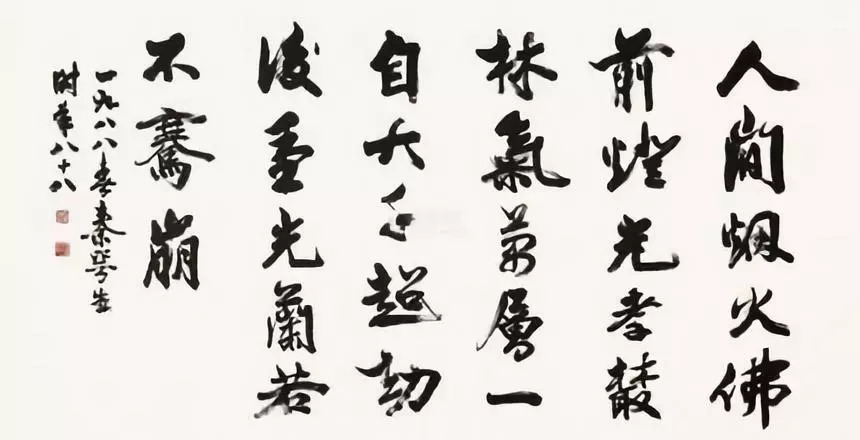 人間烟火佛
前燈光孝叢
林氣萬層一
自大千超劫
後重光蘭若
不騫崩
一九八八春秦咢生
时年八十八